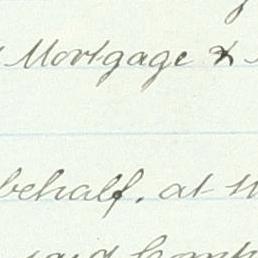 Mortgage &
behalf, at
said